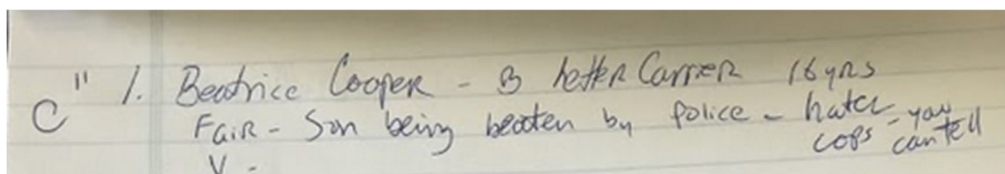 C" 1. Beatrice Cooper - B letter Carrier 16 yrs
Fair - Son being beaten by police - hates cops - you can tell
V -